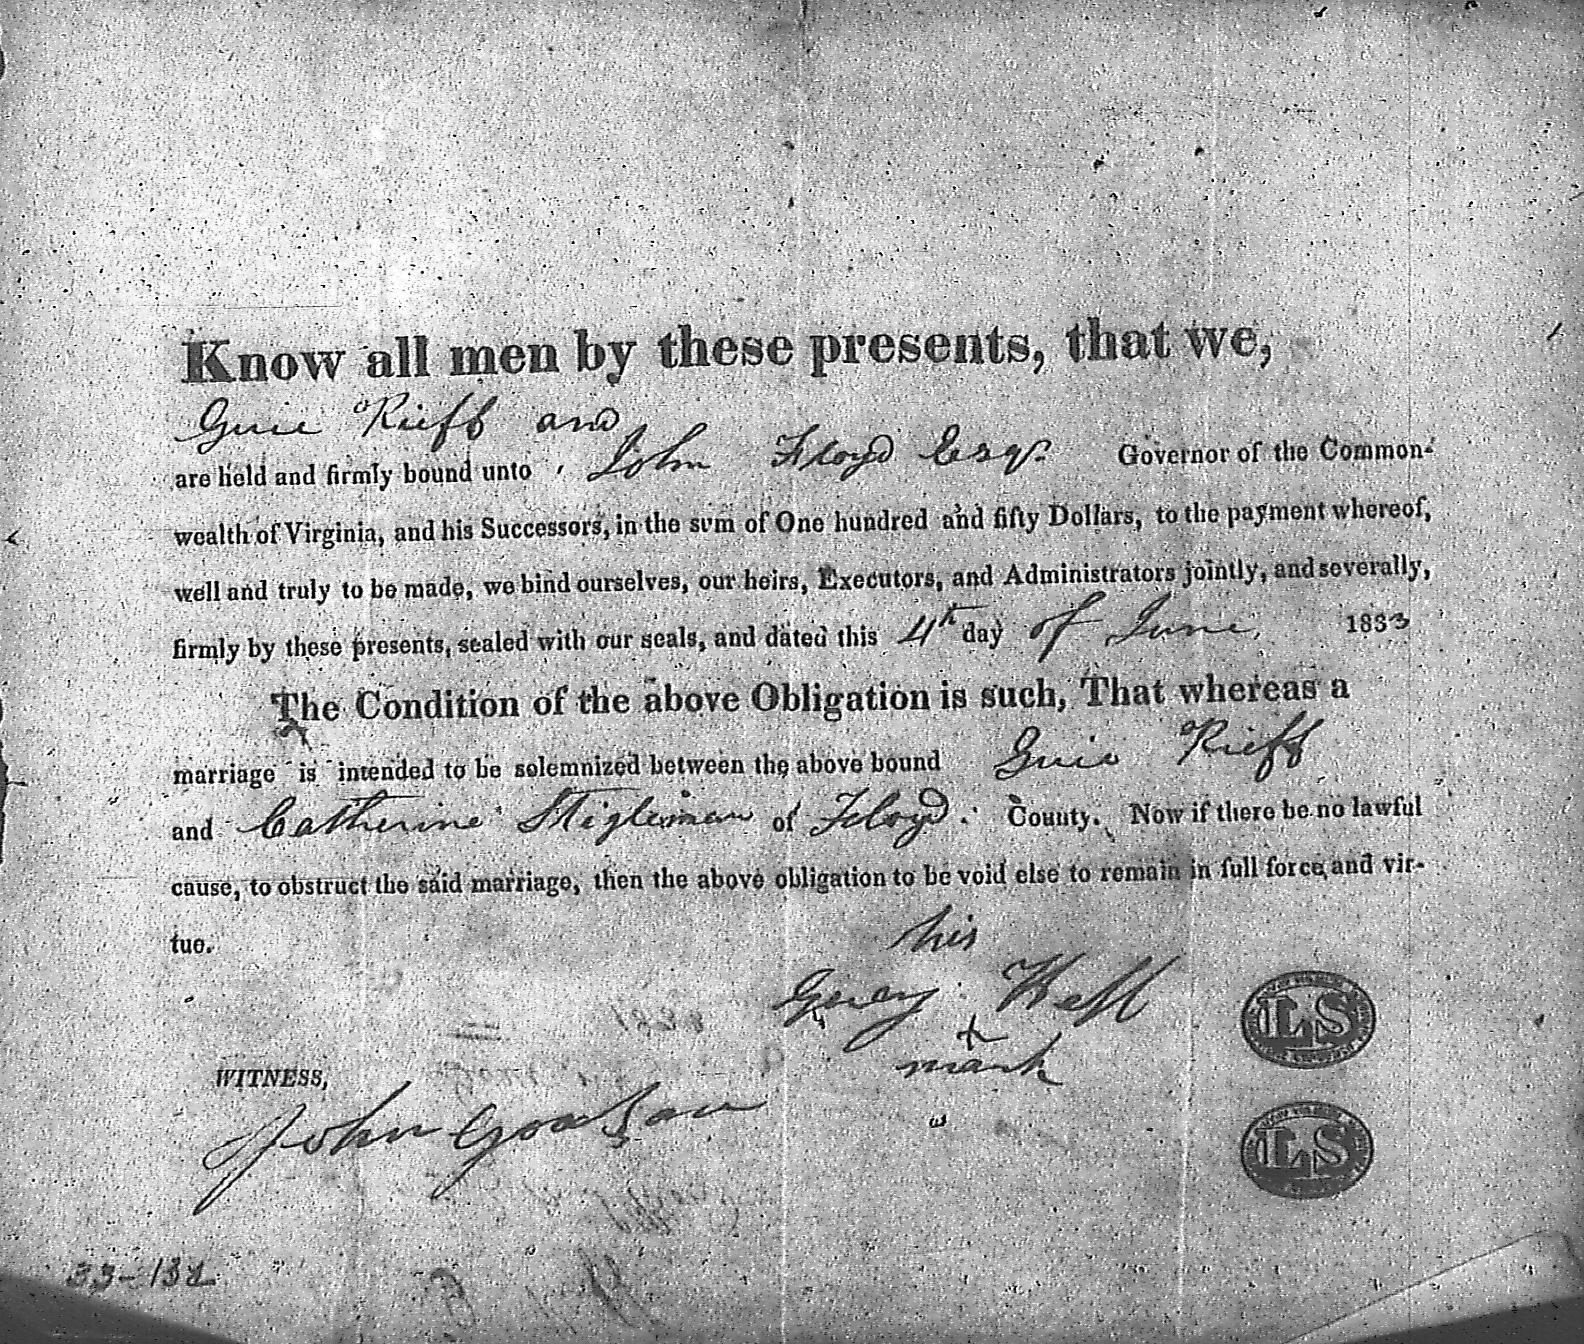 Know all men by these presents, that we,
Guie Rieff and
are held and firmly bound unto John Floyd Esqr. Governor of the Common-
wealth of Virginia, and his Successors, in the sum of One hundred and fifty Dollars, to the payment whereof,
well and truly to be made, we bind ourselves, our heirs, Executors, and Administrators jointly, and severally,
firmly by these presents, sealed with our seals, and dated this 4th day of June, 1833
The Condition of the above Obligation is such, That whereas a
marriage is intended to be solemnized between the above bound Guie Rieff
and Catherine Stigleman of Floyd. County. Now if there be no lawful
cause, to obstruct the said marriage, then the above obligation to be void else to remain in full force, and vir-
tue.
his
mark
LS
WITNESS,
John Goodson
LS